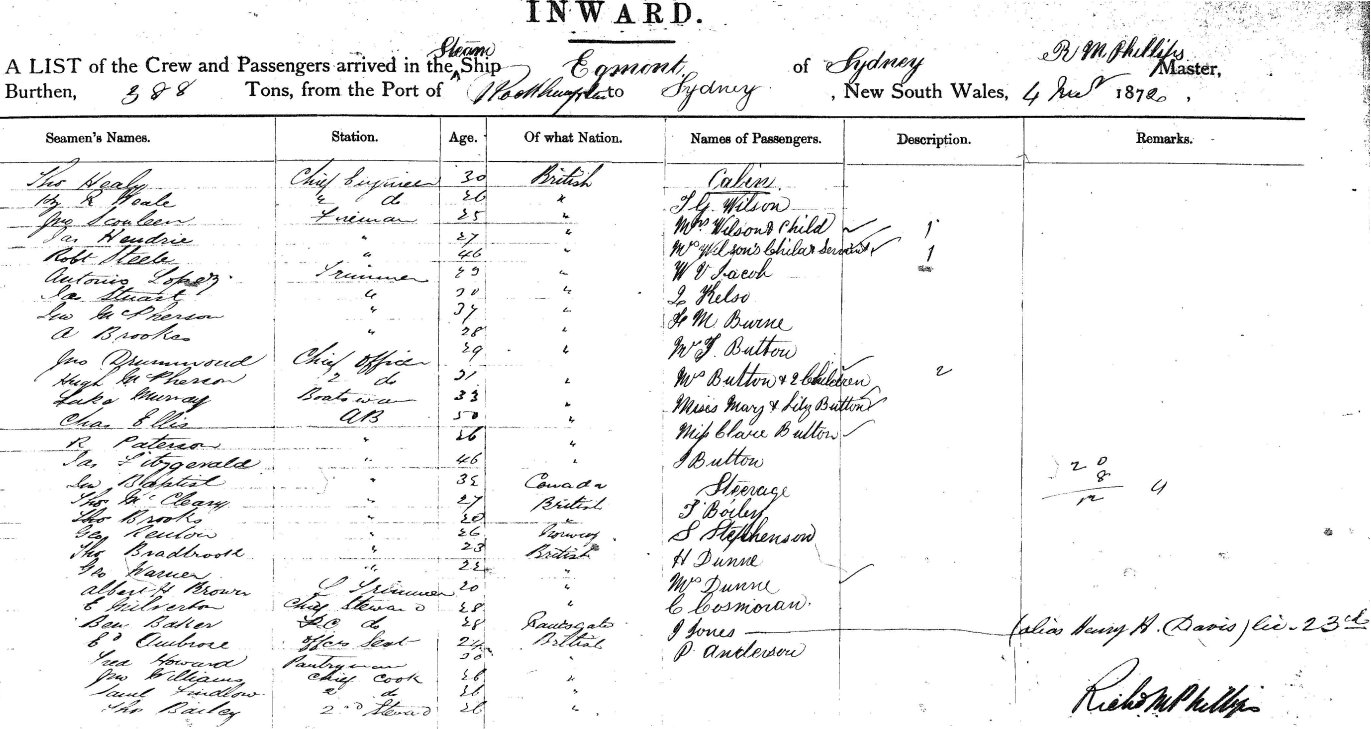 INWARD.
Steam R M Phillips
A LIST of the Crew and Passengers arrived in the Ship Egmont of Sydney Master,
Burthen, 388 Tons, from the Port of to Sydney, New South Wales, 4 1872,
Seamen's Names. Station. Age. Of what Nation. Names of Passengers. Description. Remarks.
Tho Healy Chief Engineer 30 British Cabin
Hy R Neale " do 26 " T G Wilson
Jno Fireman 25 " Mrs Wilson & Child 1
Jas Hendrie " 27 " Mrs Wilson's Child & Servant 1
Robt Steele " 46 " W V Jacob
Antonio Lopez Trimmer 29 " Kelso
Jas Stuart " 30 " H M Burne
Jno McPherson " 37 "
A Brookes " 28 " Mr T Button
Jno Drummond Chief Officer 29 "
Hugh McPherson 2 do 31 " Mrs Button & 2 Children 2
Luke Murray Boatswan 33 " Misses Mary & Lily Button
Chas Ellis AB 50 "
R Paterson " 26 " Miss Clare Button
Jas Fitzgerald " 46 " J Button 20
Jno Baptist " 32 Canada Steerage 8
Tho McCleary " 27 British T 12 4
Tho Brooks " 20 "
Geo Renton " 26 Norway S Stephenson
Tho Bradbrook " 23 British H Dunne
Geo Warner " 22 "
Albert H Brown Trimmer 20 " Mrs Dunne
E Milverton Chief Steward 28 " C Cosmoran
Ben Baker do 28 Ramsgate J Jones (alias Henry H. Davis) 23rd
Ed Ambrose Offcrs Sert 24 British P Anderson
Fred Howard Pantryman 20 "
Jno Williams Chief Cook 26 "
Saml Findlow 2 do 26 "
Tho Bailey 2nd Steward 26 " Richd M Phillips